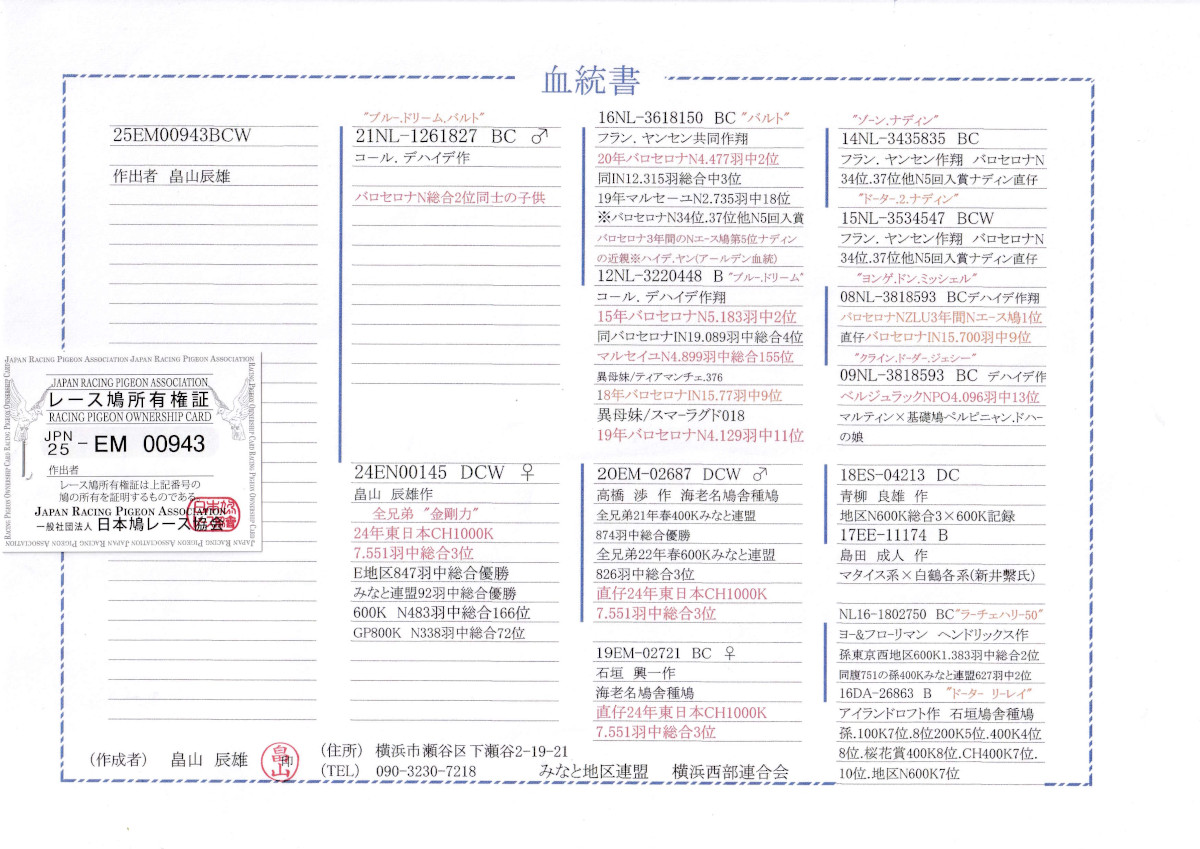 血統書
25EM00943BCW
作出者 畠山辰雄
JAPAN RACING PIGEON ASSOCIATION JAPAN RACING PIGEON ASSOCIATION
JAPAN RACING PIGEON ASSOCIATION
レース鳩所有権証
RACING PIGEON OWNERSHIP CARD
JPN
25 - EM 00943
作出者
レース鳩所有権証は上記番号の
鳩の所有を証明するものである。
JAPAN RACING PIGEON ASSOCIATION
一般社団法人 日本鳩レース協会
"ブルー.ドリーム.バルト"
21NL-1261827 BC ♂
コール. デハイデ作
バロセロナN総合2位同士の子供
24EN00145 DCW ♀
畠山 辰雄作
全兄弟 "金剛力"
24年東日本CH1000K
7.551羽中総合3位
E地区847羽中総合優勝
みなと連盟92羽中総合優勝
600K N483羽中総合166位
GP800K N338羽中総合72位
16NL-3618150 BC "バルト"
フラン. ヤンセン共同作翔
20年バロセロナN4.477羽中2位
同IN12.315羽総合中3位
19年マルセーユN2.735羽中18位
※バロセロナN34位.37位他N5回入賞
バロセロナ3年間のNエース鳩第5位ナディン
の近親※ハイデ.ヤン(アールデン血統)
12NL-3220448 B "ブルー.ドリーム"
コール. デハイデ作翔
15年バロセロナN5.183羽中2位
同バロセロナIN19.089羽中総合4位
マルセイユN4.899羽中総合155位
異母妹/ティアマンチェ.376
18年バロセロナIN15.77羽中9位
異母妹/スマーラグド018
19年バロセロナN4.129羽中11位
20EM-02687 DCW ♂
高橋 渉 作 海老名鳩舎種鳩
全兄弟21年春400Kみなと連盟
874羽中総合優勝
全兄弟22年春600Kみなと連盟
826羽中総合3位
直仔24年東日本CH1000K
7.551羽中総合3位
19EM-02721 BC ♀
石垣 興一作
海老名鳩舎種鳩
直仔24年東日本CH1000K
7.551羽中総合3位
"ゾーン.ナディン"
14NL-3435835 BC
フラン. ヤンセン作翔 バロセロナN
34位.37位他N5回入賞ナディン直仔
"ドーター.2.ナディン"
15NL-3534547 BCW
フラン. ヤンセン作翔 バロセロナN
34位.37位他N5回入賞ナディン直仔
"ヨンゲ.ドン.ミッシェル"
08NL-3818593 BCデハイデ作翔
バロセロナNZLU3年間Nエース鳩1位
直仔バロセロナIN15.700羽中9位
"クライン.ドーダー.ジェシー"
09NL-3818593 BC デハイデ作
ベルジュラックNPO4.096羽中13位
マルティン×基礎鳩ペルピニャン.ドハー
の娘
18ES-04213 DC
青柳 良雄 作
地区N600K総合3×600K記録
17EE-11174 B
島田 成人 作
マタイス系×白鶴各系(新井繋氏)
NL16-1802750 BC"ラーチェハリー50"
ヨー&フローリマン ヘンドリックス作
孫東京西地区600K1.383羽中総合2位
同腹751の孫400Kみなと連盟627羽中2位
16DA-26863 B "ドーター リーレイ"
アイランドロフト作 石垣鳩舎種鳩
孫.100K7位.8位200K5位.400K4位
8位.桜花賞400K8位.CH400K7位.
10位.地区N600K7位
(作成者) 畠山 辰雄 畠山 印
(住所) 横浜市瀬谷区下瀬谷2-19-21
(TEL) 090-3230-7218 みなと地区連盟 横浜西部連合会